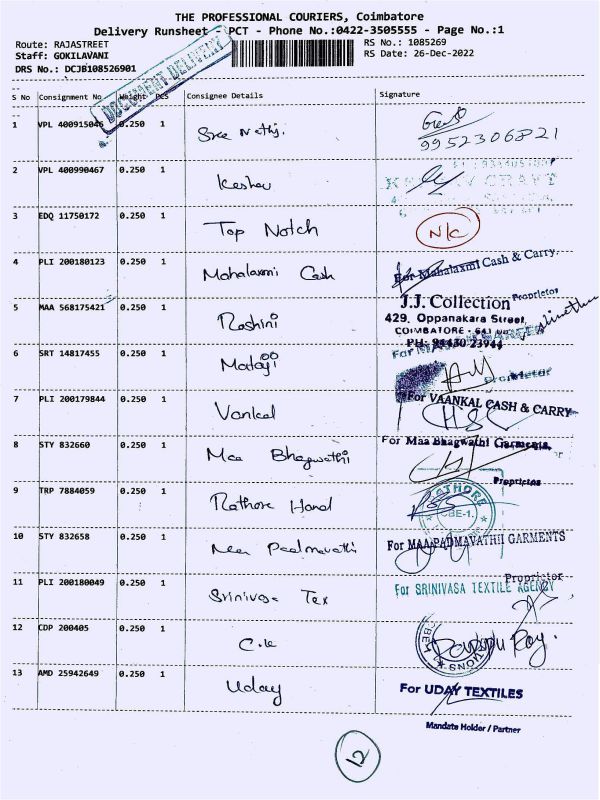 THE PROFESSIONAL COURIERS, Coimbatore
Delivery Runsheet - PCT - Phone No.:0422-3505555 - Page No.:1
Route: RAJASTREET
RS No.: 1085269
Staff: GOKILAVANI
RS Date: 26-Dec-2022
DRS No.: DCJB108526901
DOCUMENT DELIVERY
S No Consignment No Weight PCS Consignee Details Signature
1 VPL 400915046 0.250 1 Sree Nathji.
9952306821
2 VPL 400990467 0.250 1 Keshav
3 EDQ 11750172 0.250 1 Top Notch N/C
4 PLI 200180123 0.250 1 Mahalaxmi Cash For Mahalaxmi Cash & Carry.
Proprietor
5 MAA 568175421 0.250 1 Roshini J.J. Collection
429, Oppanakara Street,
COIMBATORE - 641
PH: 94430 23944
6 SRT 14817455 0.250 1 Mataji For
Proprietor
7 PLI 200179844 0.250 1 Vankal For VAANKAL CASH & CARRY
8 STY 832660 0.250 1 Maa Bhagwathi For Maa Bhagwathi Garments,
Proprietor
9 TRP 7884059 0.250 1 Rathore Hand RATHORE
CBE-1.
10 STY 832658 0.250 1 Maa Padmavathi For MAA PADMAVATHII GARMENTS
Proprietor
11 PLI 200180049 0.250 1 Srinivasa Tex For SRINIVASA TEXTILE AGENCY
12 CDP 200405 0.250 1 C.K
13 AMD 25942649 0.250 1 Uday For UDAY TEXTILES
Mandate Holder / Partner
12